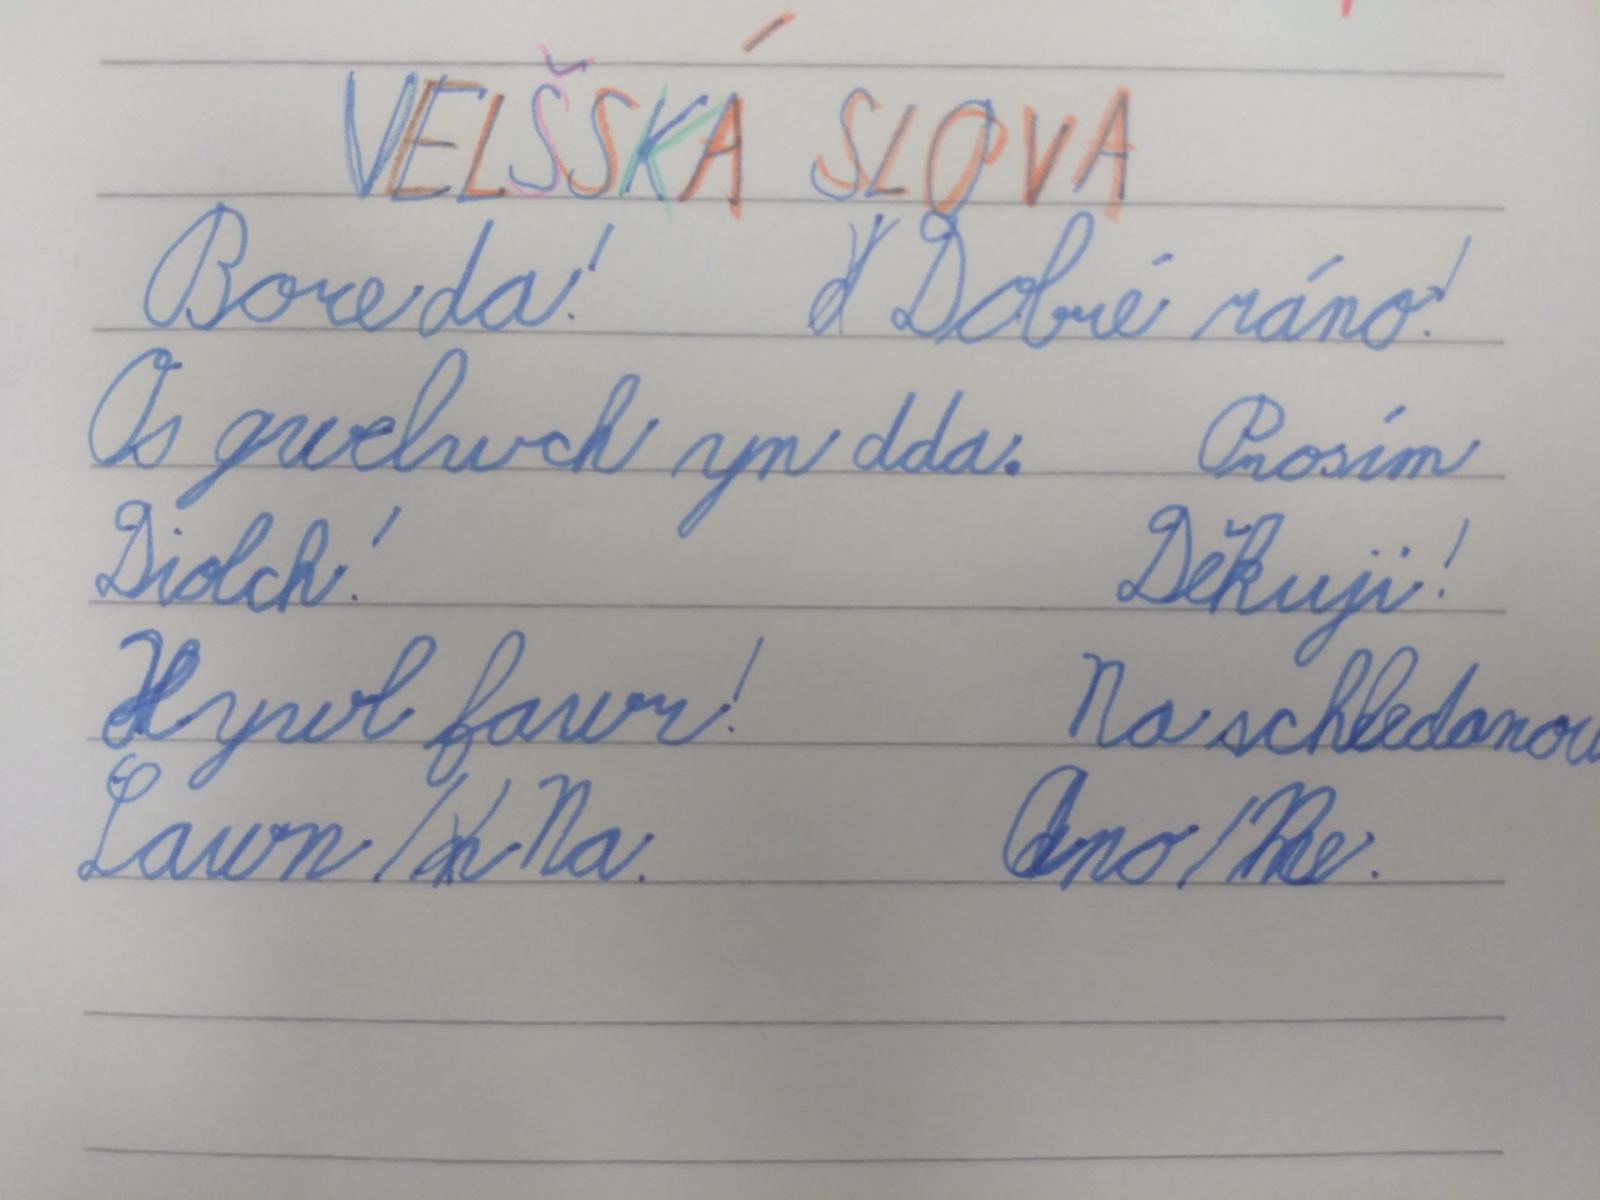 VELŠSKÁ SLOVA
Bore da! Dobré ráno!
Os gwelwch yn dda. Prosím
Diolch! Děkuji!
Hywl fawr! Na schledanou
Lawn / Na. Ano / Ne.